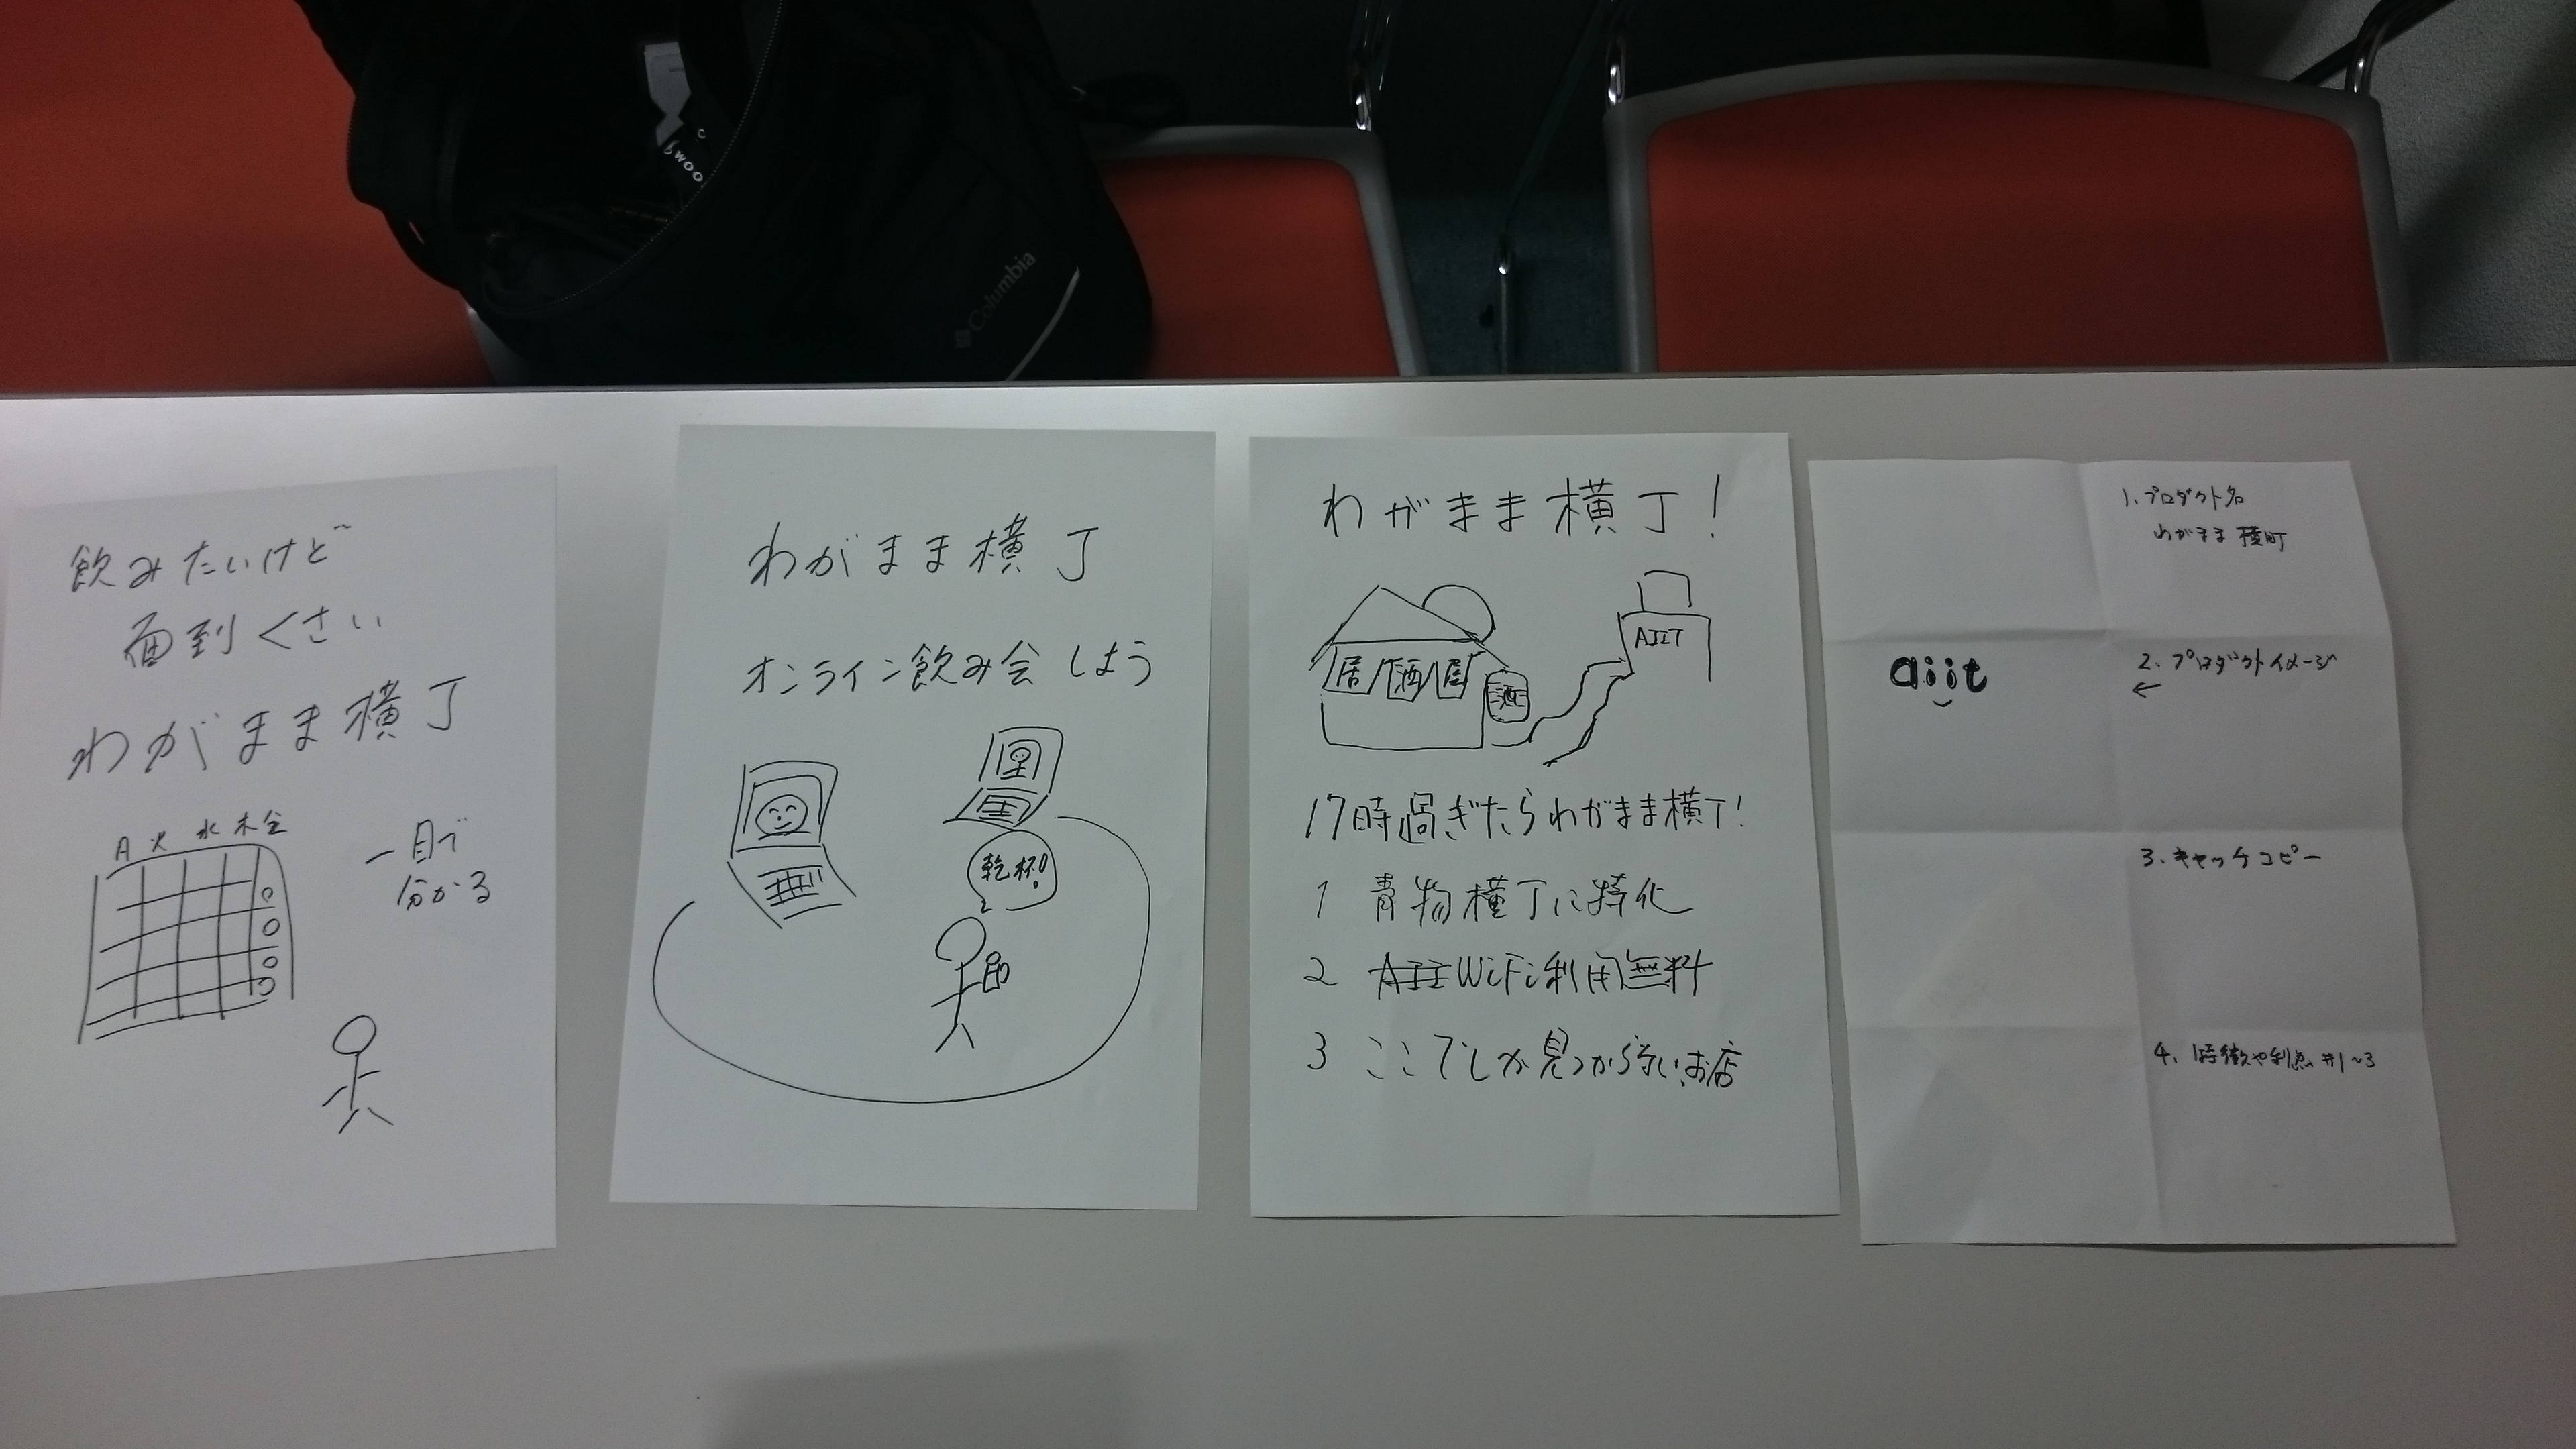 Columbia
飲みたいけど
面到くさい
わがまま横丁
月 火 水 木 金
一目で
分かる
わがまま横丁
オンライン飲み会しよう
乾杯!
わがまま横丁!
居酒屋
酒
AIIT
17時過ぎたらわがまま横丁!
1 青物横丁に特化
2 AIIT WiFi利用無料
3 ここでしか見つからないお店
1、プロダクト名
わがまま横町
aiit
2、プロダクトイメージ
←
3、キャッチコピー
4、特徴や利点 #1~3